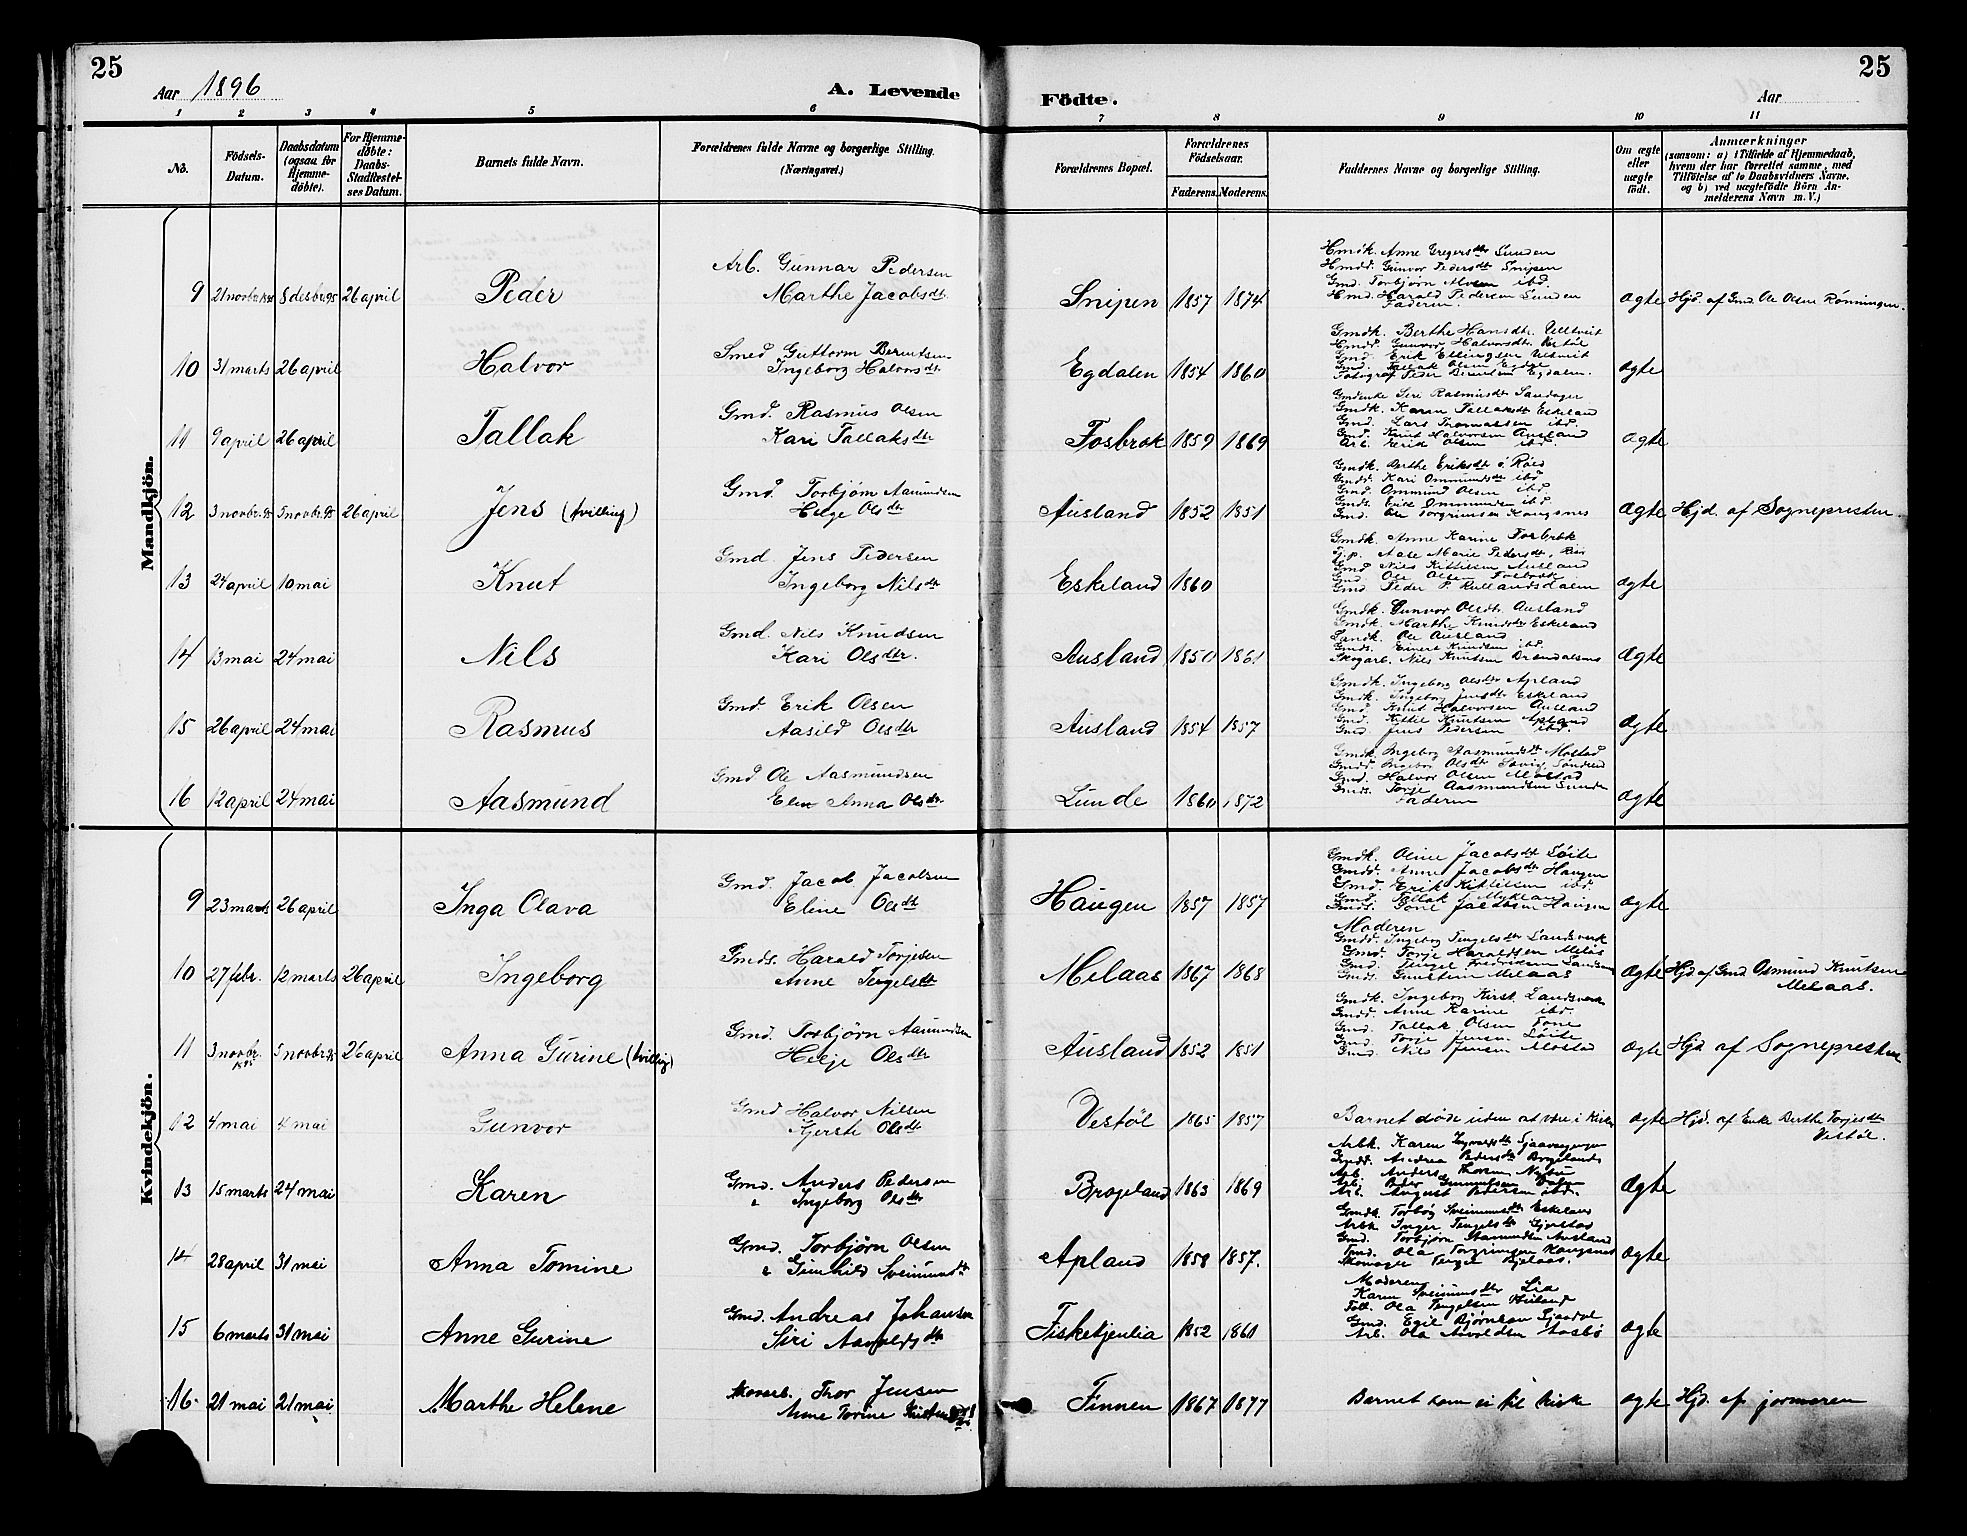 25
25
Aar 1896
A. Levende
Fødte.
Aar
1 2 3 4 5 6 7 8 9 10 11
No.
Fødsels-Datum.
Daabsdatum (ogsaa for Hjemmedøbte).
For Hjemmedøbte: Daabs-Stadfæstelses Datum.
Barnets fulde Navn.
Forældrenes fulde Navne og borgerlige Stilling. (Næringsvei.)
Forældrenes Bopæl.
Forældrenes Fødselsaar.
Faderens. Moderens.
Faddernes Navne og borgerlige Stilling.
Om ægte eller uægte født.
Anmærkninger (saasom: a) i Tilfælde af Hjemmedaab, hvem der har forrettet samme, med Tilføielse af to Daabsvidners Navne, og b) ved uægtefødte Børn Anmelderens Navn m. V.)
Mandkjøn.
9 21 novbr. 1895 8 desbr. 95 26 april Peder Arb. Gunnar Pedersen
Marthe Jacobsdt. Snipen 1857 1874
Hmdk. Anne Gregersdtr Lunden
Hmdd. Gunvor Pedersdt Snipen
Gmd. Torbjørn Olsen ibd.
Hmd. Harald Pedersen Lunden
Faderen.
ægte Hjd. af Gmd. Ole Olsen Rønningen.
10 31 marts 26 april Halvor Smed Guttorm Berntsen
Ingeborg Halvorsdtr Egdalen 1854 1860
Gmdk. Berthe Hansdtr. Ultveit
Hmdd. Gunvor Halvorsdtr. Vestøl
Gmd. Erik Ellingsen Ultveit
Gmd. Tallak Olsen Egdal
Fotograf Peder Berntsen Egdalen.
ægte
11 9 april 26 april Tallak Gmd. Rasmus Olsen
Kari Tallaksdtr Fosbrok 1859 1869
Gmdenke Siri Rasmusdtr Sandager
Gmdk. Karen Tallaksdt Eskeland
Gmd. Lars Thomassen ibd.
Gmd. Knut Halvorsen Ausland
Arb. Erik Olsen ibd.
ægte
12 3 novbr. 95 5 novbr. 95 26 april Jens (tvilling) Gmd. Torbjørn Aamundsen
Helje Olsdtr Ausland 1852 1851
Gmdk. Berthe Eriksdt ibd
Gmdd. Kari Ommundsdt ibd
Gmd. Ommund Olsen ibd
Gmds. Erik Ommundsen ibd
Gmd. Ole Torgrimsen Kougsnes
ægte Hjd. af Sognepresten.
13 24 april 10 mai Knut Gmd Jens Pedersen
Ingeborg Nilsdtr Eskeland 1860
Gmdk. Anne Karine Fosbrok
Tjp. Aase Marie Pedersdt,
Gmd Nils Kittilsen Ausland
Gmd Ole Olsen Fosbrok
Gmd Peder P. Rullandsdalen
ægte
14 13 mai 24 mai Nils Gmd. Nils Knudsen
Kari Olsdtr. Ausland 1850 1861
Gmdk. Gunvor Olsdtr. Ausland
Gmdk. Marthe Knudsdtr Eskeland
Landh. Ole Ausland
Gmds. Einert Knudsen ibd.
Skogarb. Nils Knutsen
ægte
15 26 april 24 mai Rasmus Gmd Erik Olsen
Aasild Olsdtr Ausland 1854 1857
Gmdk. Ingeborg Olsdtr Apland
Gmdk. Ingeborg Jensdt Eskeland
Gmd. Knut Halvorsen Ausland
Gmd. Kittil Knutsen Apland
Gmd. Jens Pedersen ibd.
ægte
16 12 april 24 mai Aasmund Gmd Ole Aasmundsen
Elen Anna Olsdtr. Lunde 1860 1872
Gmdk. Ingeborg Aasmundsdt Mostad
Gmdd. Ingeborg Olsdtr
Gmd. Halvor Olsen Mostad
Gmds. Torje Aasmundsen Lunde
Faderen
ægte
Kvindekjøn.
9 23 marts 26 april Inga Olava Gmd. Jacob Jacobsen
Eline Olsdt Haugen 1857 1857
Gmdk. Oline Jacobsdt Løite
Gmdd. Anne Jacobsdtr Haugen
Gmd. Erik Kittilsen ibd
Gmd. Tallak J. Mykland
Gmds. Gone Jacobsen Haugen
ægte
10 27 febr. 12 marts 26 april Ingeborg Gmds. Harald Torjesen
Anne Tengelsdt Milaas 1867 1868
Moderen
Gmdd. Ingeborg Tengelsdtr Landsverk
Gmd. Torje Haraldsen Milås
Gmd. Tengel Fredriksen Landsverk
Gmds. Gunstein Milaas
ægte Hjd af Gmd. Osmund Knutsen
Milaas.
11 3 novbr. 1895 5 novbr. 95 26 april Anna Gurine (tvilling) Gmd. Torbjørn Aamundsen
Helje Olsdtr Ausland 1852 1851
Gmdk. Ingeborg Kirst. Landsverk
Gmdd. Anne Karine ibd
Gmd. Tallak Olsen Tone
Gmd. Torje Jensen Løite
Gmd. Nils Jensen Mostad
ægte Hjd af Sognepresten
12 4 mai 4 mai Gunvor Gmd Halvor Nilsen
Kjersti Olsdt Vestøl 1865 1857
Barnet døde uden at være i Kirke
ægte Hjd. af Enke Berthe Torjesdt
Vestøl.
13 15 marts 24 mai Karen Gmd. Anders Pedersen
" Ingeborg Olsdt Brogeland 1863 1869
Arbk. Karen
Gmdd. Andrea Pedersdt Brogelands
Arb. Anders Larsen
Arb. Peder Gunnulfsen
Arb. August Pedersen ibd.
ægte
14 28 april 31 mai Anna Tomine Gmd. Torbjørn Olsen
" Gunhild Sveinunsdt Apland 1858 1857.
Gmdk. Torbør Sveinunsdt Eskeland
Arbk Inger Tengelsdt Gjerstad
Gmd. Torbjørn Aamundsen Ausland
Gmd. Ola Torgrimsen Kougsnes
Skomager Tengel
ægte
15 6 marts 31 mai Anne Gurine Gmd. Andreas Johansen
Siri Aavoldsdt Fisketjenlia 1852 1860
Moderen
Karen Sveinunsdtr Lia
Folk. Ola Tengelsen
Gmd. Egil Bjørnsen
Arb. Ola Avoldsen Aasbø
ægte
16 21 mai 21 mai Marthe Helene Skoarb. Thor Jensen
Anne Torine Finnen 1867 1877
Barnet kom ei til kirke
ægte Hjd. af jormoren